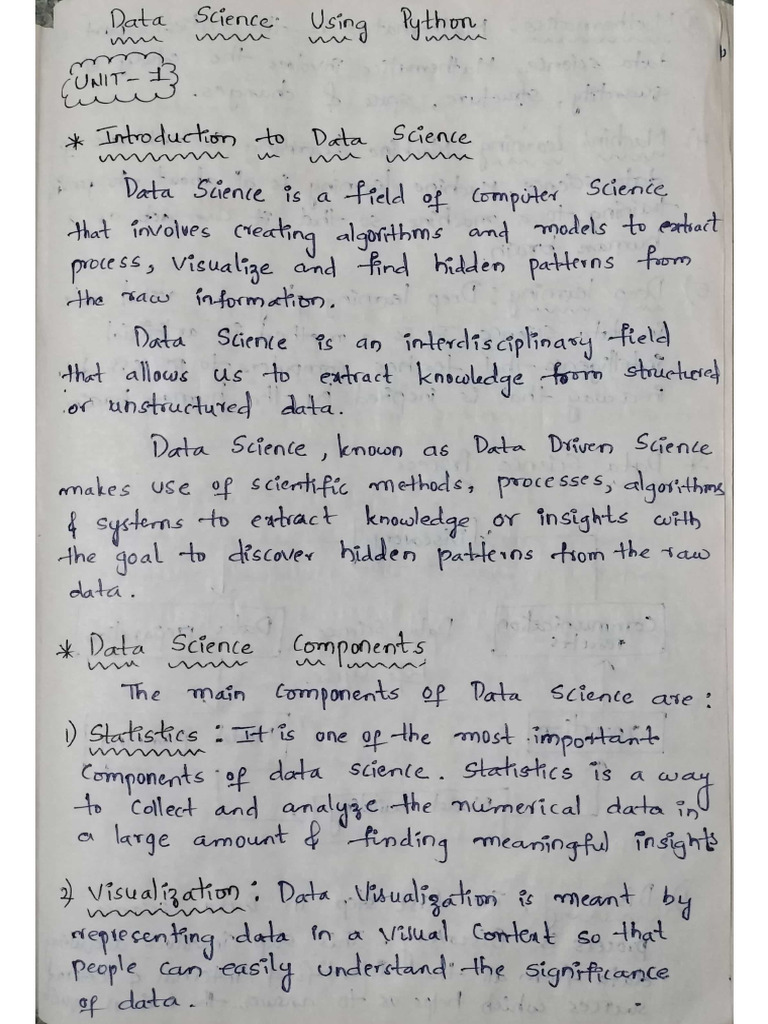 Data Science Using Python
UNIT-1
* Introduction to Data Science
Data Science is a field of computer Science
that involves creating algorithms and models to extract
process, visualize and find hidden patterns from
the raw information.
Data Science is an interdisciplinary field
that allows us to extract knowledge from structured
or unstructured data.
Data Science, known as Data Driven Science
makes use of scientific methods, processes, algorithms
& systems to extract knowledge or insights with
the goal to discover hidden patterns from the raw
data.
* Data Science Components
The main components of Data Science are:
1) Statistics: It is one of the most important
Components of data science. Statistics is a way
to collect and analyze the numerical data in
a large amount & finding meaningful insights
2) Visualization: Data Visualization is meant by
representing data in a visual Context so that
people can easily understand the significance
of data.